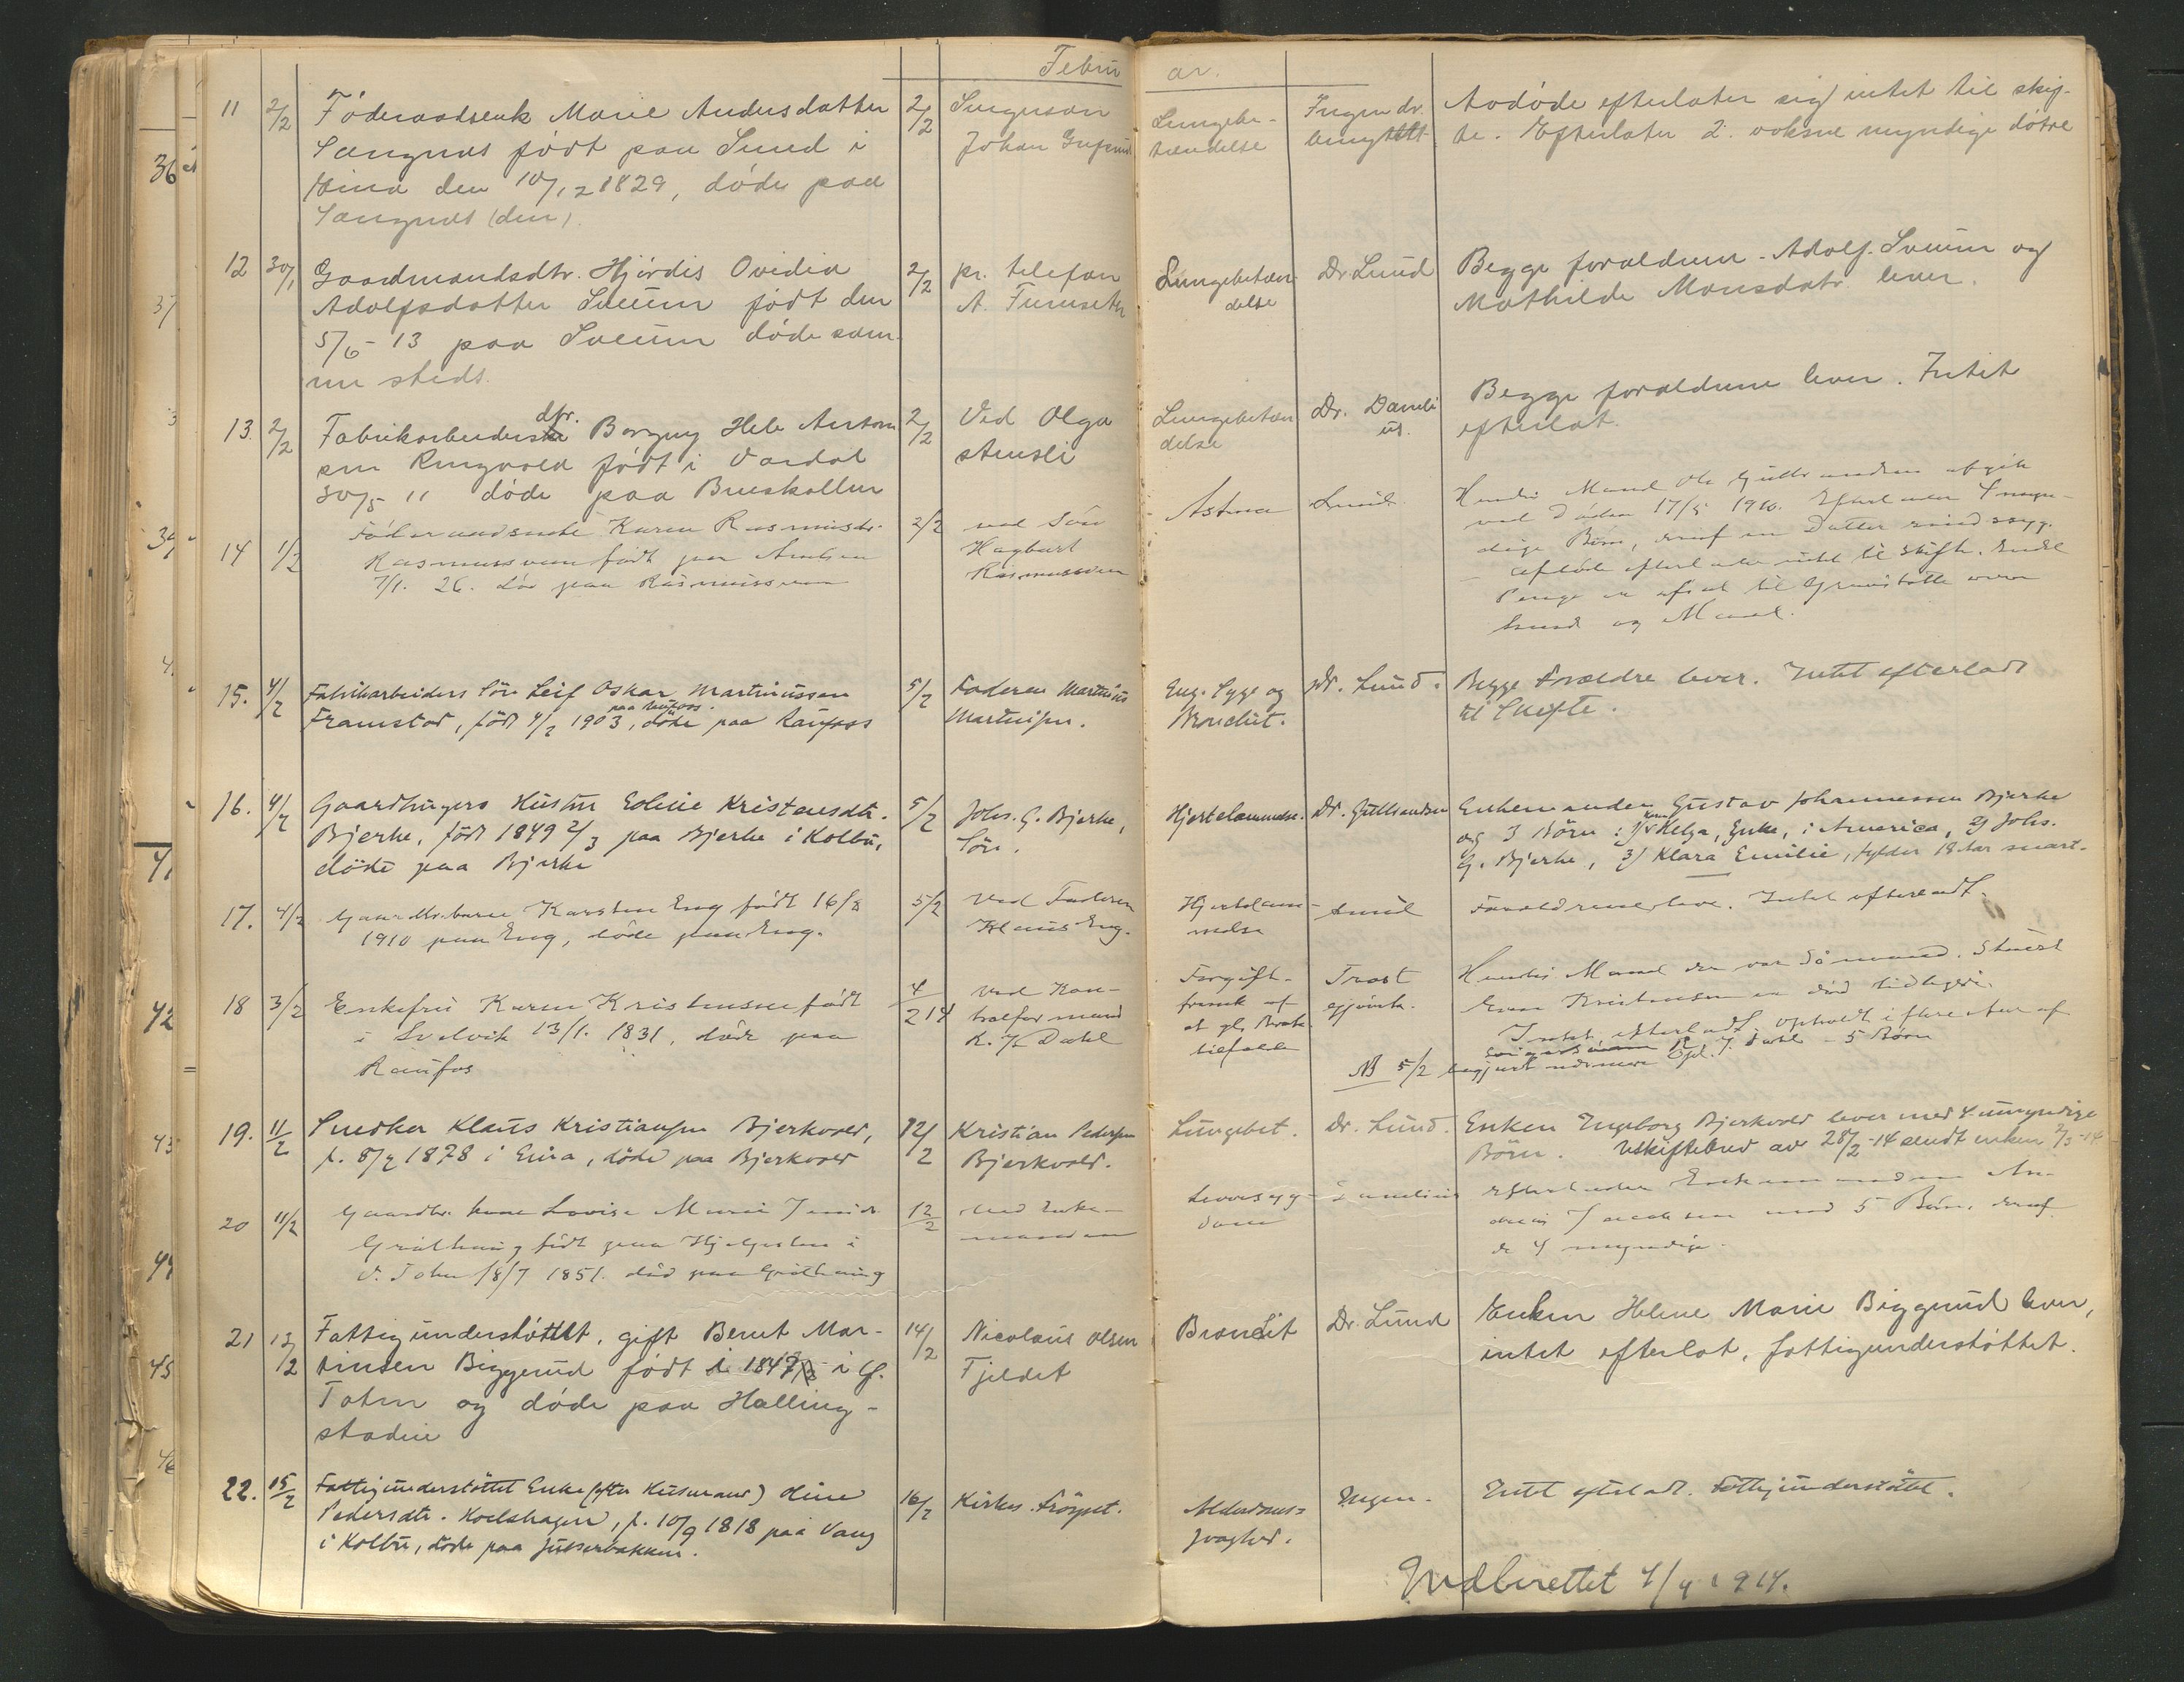 Februar.
11 2/2 Föderaadsenk Marie Andersdatter
født paa Sund i
den 10/12 1829, døde paa
(den).
2/2
Johan
Lungebe-
tændelse
Ingen dr.
benyttet
Avdøde efterlater sig intet til skif-
te. Efterlater 2 voksne myndige døtre
12 30/1 Gaardmandsdtr. Hjørdis Ovidia
Adolfsdatter Sveum født den
5/6 - 13 paa Sveum døde sam-
me steds.
2/2 pr. telefon
A. Furuseth
Lungebetæn-
delse
Dr. Lund
Begge forældrene Adolf Sveum og
Mathilde Monsdatr. lever.
13. 2/2 Fabrikarbeiders dtr. Borgny Anton-
sen Ringvold født i Vardal
30/5 11 døde paa Brueskollen
2/2 Ved Olga
Lungebetæn-
delse
Dr. Daneli-
us.
Begge forældrene lever. Intet
efterlat.
14 1/2 Karen Rasmusdr.
Rasmussveen født paa
7/1. 26. død paa Rasmussveen
2/2 ved Søn
Hagbart
Rasmussveen
Astma
Lund
Hendes Mand Ole Gulbrandsen afgik
ved Døden 17/5 1910. Efterlader 4 myn-
dige Børn, deraf en Datter sindssyg.
Afdøde efterlader intet til Skifte. Endel
Penge er afsat til Gravstøtte over
hende og Mand.
15. 4/2 Fabrikarbeiders Søn Leif Oskar Martinussen
Framstad, född 4/2 1903 paa Raufoss, döde paa Raufoss
5/2 Faderen Martinus
Martinsen.
Eng. Syge og
Bronchit.
Dr. Lund.
Begge Forældre lever. Intet efterladt
til Skifte.
16. 4/2 Gaardbrugers Hustru Eoline Kristensdtr.
Bjerke, född 1849 2/3 paa Bjerke i Kolbu,
döde paa Bjerke
5/2 Johs. G. Bjerke,
Sön.
Hjertelammelse.
Dr. Gulbrandsen
Enkemanden Gustav Johannessen Bjerke
og 3 Börn: 1/ Helga, Enke, i America, 2/ Johs.
G. Bjerke, 3/ Klara Emilie, fylder 18 Aar snart.
17. 4/2 Karsten Eng født 16/8
1910 paa Eng, døde paa Eng.
5/2 ved Faderen
Klaus Eng.
Hjertelam-
melse
Lund
Forældrene leve. Intet efterladt.
18 3/2 Enkefru Karen Kristensen født
i Svelvik 13/1. 1831, døde paa
Raufos
4/2 14 ved Kon-
trolformand
K. Dahl
Forgift-
Trost
Gjøvik.
Hendes Mand der var Sømand. Stuert
Kristensen er død tidligere.
Intet efterladt. Opholdt i flere Aar af
Dahl - 5 Børn
NB 5/2
19. 11/2 Snedker Klaus Kristiansen Bjerkvold,
f. 8/2 1878 i Eina, döde paa Bjerkvold
12/2 Kristian Pedersen
Bjerkvold.
Lungebet.
Dr. Lund.
Enken Ingeborg Bjerkvold lever med 4 umyndige
Börn. Uskiftebrev av 28/2-14 sendt enken 2/3-14
20 11/2 Gaardbr. kone Lovise Marie
født paa i
V. Toten 18/7 1851. død paa
12/2 ved Enke-
manden
Leversyg-
dom
Danelius
Efterlader Enkemanden An-
dreas Jacobsen med 5 Børn, deraf
de 4 myndige.
21 13/2 Fattigunderstøttet, gift Bernt Mar-
tinsen Biggerud født i 1847 i Ø.
Toten og døde paa Halling-
stadeie
14/2 Nicolaus Olsen
Fjeldet
Bronchit
Dr. Lund
Enken Helene Marie Biggerud lever,
intet efterlat, fattigunderstøttet.
22. 15/2 Fattigunderstöttet Enke (efter Husmand) Oline
Pedersdtr. Koelshagen, f. 10/9 1818 paa Vang
i Kolbu, döde paa
16/2 Kirkes.
Alderdoms-
svaghed.
Ingen.
Intet efterladt. Fattigunderstöttet.
Indberettet 4/4 1914.
36
37
39
41
42
43
44
45
46